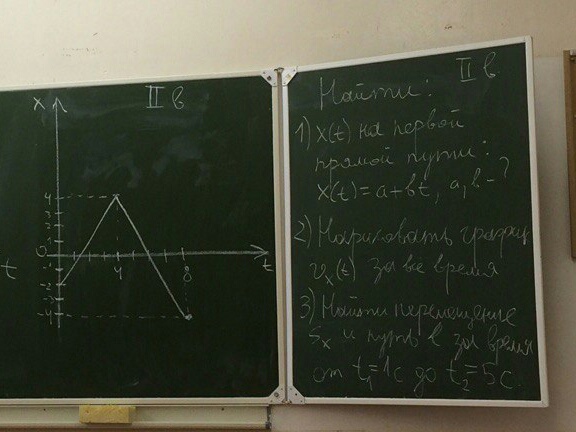 II в
x
4
3
2
1
0
-1
-2
-3
-4
4
8
t
t
II в
Найти:
1) x(t) на первой
прямой пути:
x(t) = a + bt, a, b - ?
2) Нарисовать график
υx(t) за все время
3) Найти перемещение
Sx и путь l за время
от t1 = 1с до t2 = 5с.